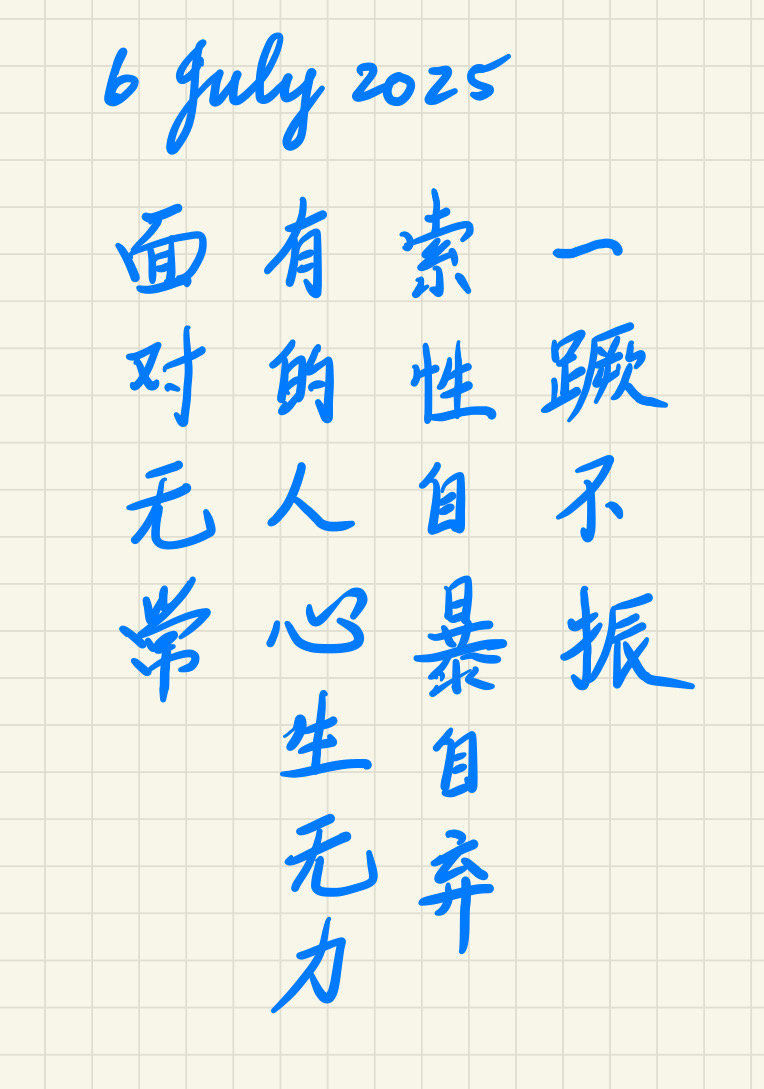 6 July 2025
面对无常
有的人心生无力
索性自暴自弃
一蹶不振